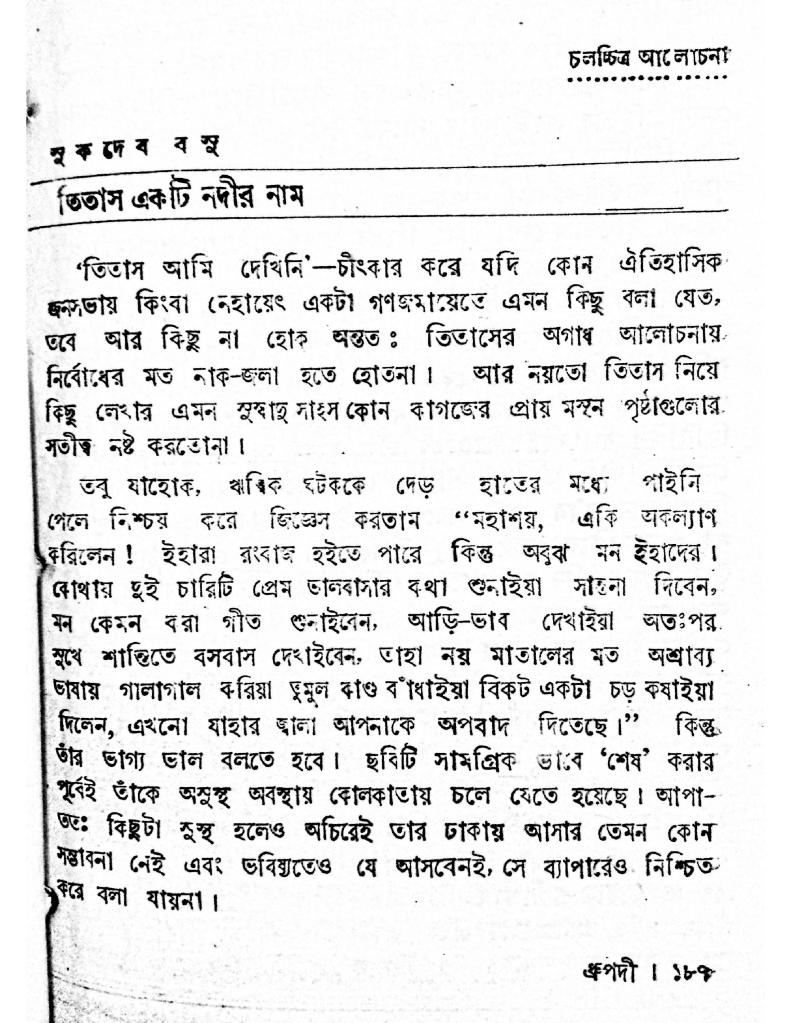 চলচ্চিত্র আলোচনা
সুকদেব বসু
তিতাস একটি নদীর নাম
'তিতাস আমি দেখিনি'—চীৎকার করে যদি কোন ঐতিহাসিক
জনসভায় কিংবা নেহায়েৎ একটা গণজমায়েতে এমন কিছু বলা যেত,
তবে আর কিছু না হোক অন্তত: তিতাসের অগাধ আলোচনায়
নির্বোধের মত নাক-জলা হতে হোতনা। আর নয়তো তিতাস নিয়ে
কিছু লেখার এমন সুস্বাদু সাহস কোন কাগজের প্রায় মস্থন পৃষ্ঠাগুলোর
সতীত্ব নষ্ট করতোনা।
তবু যাহোক, ঋত্বিক ঘটককে দেড় হাতের মধ্যে পাইনি
পেলে নিশ্চয় করে জিজ্ঞেস করতাম "মহাশয়, একি অকল্যাণ
করিলেন! ইহারা রংবাজ হইতে পারে কিন্তু অবুঝ মন ইহাদের।
কোথায় দুই চারিটি প্রেম ভালবাসার কথা শুনাইয়া সান্ত্বনা দিবেন,
মন কেমন করা গীত শুনাইবেন, আড়ি-ভাব দেখাইয়া অতঃপর
সুখে শান্তিতে বসবাস দেখাইবেন, তাহা নয় মাতালের মত অশ্রাব্য
ভাষায় গালাগাল করিয়া তুমুল কাণ্ড বাঁধাইয়া বিকট একটা চড় কষাইয়া
দিলেন, এখনো যাহার জ্বালা আপনাকে অপবাদ দিতেছে।" কিন্তু
তাঁর ভাগ্য ভাল বলতে হবে। ছবিটি সামগ্রিক ভাবে 'শেষ' করার
পূর্বেই তাঁকে অসুস্থ অবস্থায় কোলকাতায় চলে যেতে হয়েছে। আপা-
তত: কিছুটা সুস্থ হলেও অচিরেই তার ঢাকায় আসার তেমন কোন
সম্ভাবনা নেই এবং ভবিষ্যতেও যে আসবেনই, সে ব্যাপারেও নিশ্চিত
করে বলা যায়না।
ধ্রুপদী । ১৮৭